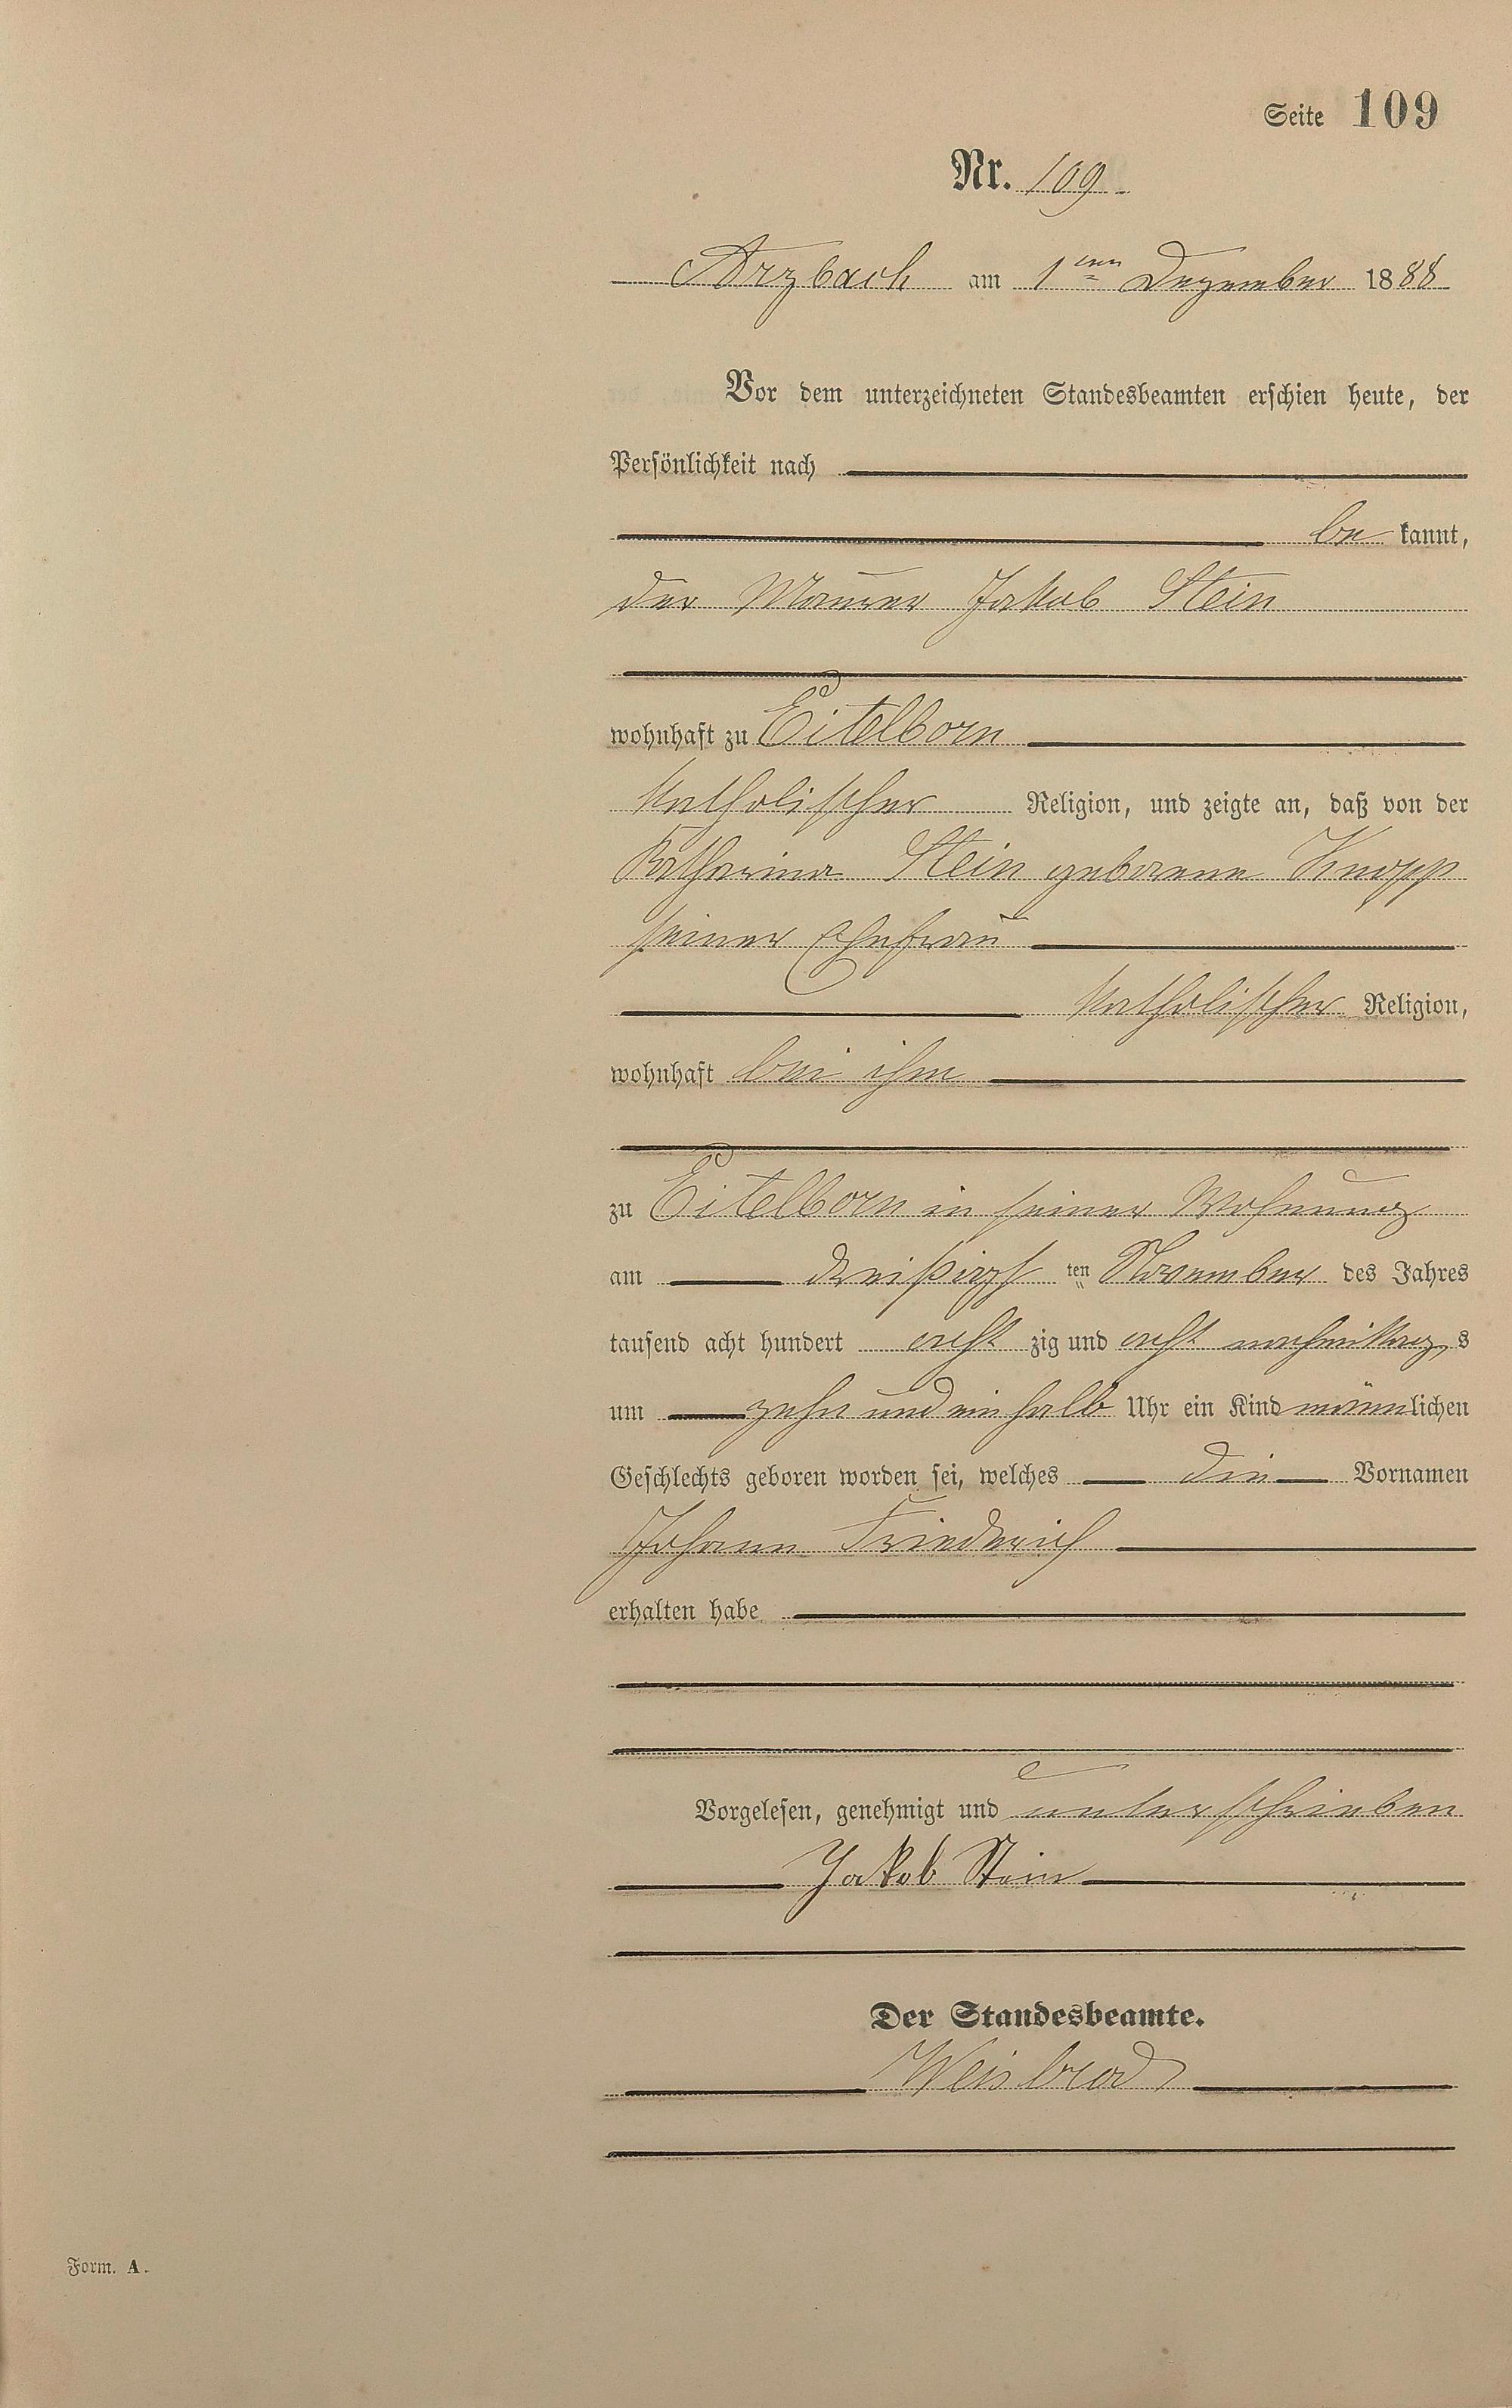 Seite 109
Nr. 109
Arzbach am 1ten Dezember 1888
Vor dem unterzeichneten Standesbeamten erschien heute, der
Persönlichkeit nach
be kannt,
der Maurer Jakob Stein
wohnhaft zu Eitelborn
katholischer Religion, und zeigte an, daß von der
Katharina Stein geborene Knopp
seiner Ehefrau
katholischer Religion,
wohnhaft bei ihm
zu Eitelborn in seiner Wohnung
am dreißigs ten November des Jahres
tausend acht hundert acht zig und acht nachmittag s
um zehn und ein halb Uhr ein Kind männlichen
Geschlechts geboren worden sei, welches die Vornamen
Johann Friederich
erhalten habe
Vorgelesen, genehmigt und unterschrieben
Jakob Stein
Der Standesbeamte.
Weisbrod
Form. A.